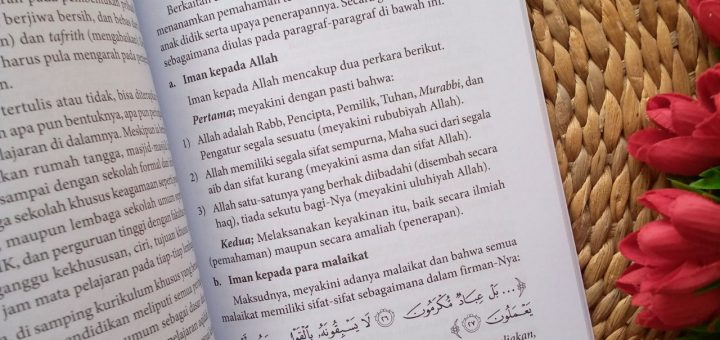 berjiwa bersih, dan beba
dan tafrith (mengabaikan)
harus pula mengarah pada pence
tertulis atau tidak, bisa diterap
apa pun bentuknya, apa pun pem
elajaran di dalamnya. Meskipun
kan rumah tangga, masjid-masjid
sampai dengan sekolah formal dan
ga sekolah khusus keagamaan seperti
maupun lembaga sekolah umum
IK, dan perguruan tinggi dengan fakultas
ganggu kekhususan, ciri, tujuan khusus
jam mata pelajaran pada tiap-tiap
a, di samping kurikulum khusus yang
endidikan meliputi semua
umum sebagai dasar
pelajaran
Berkaitan
menanamkan pemahaman
anak didik serta upaya penerapannya. Secara
sebagaimana diulas pada paragraf-paragraf di bawah ini.
a. Iman kepada Allah
Iman kepada Allah mencakup dua perkara berikut.
Pertama; meyakini dengan pasti bahwa:
1) Allah adalah Rabb, Pencipta, Pemilik, Tuhan, Murabbi, dan
Pengatur segala sesuatu (meyakini rububiyah Allah).
2) Allah memiliki segala sifat sempurna, Maha suci dari segala
aib dan sifat kurang (meyakini asma dan sifat Allah).
3) Allah satu-satunya yang berhak diibadahi (disembah secara
haq), tiada sekutu bagi-Nya (meyakini uluhiyah Allah).
Kedua; Melaksanakan keyakinan itu, baik secara ilmiah
(pemahaman) maupun secara amaliah (penerapan).
b. Iman kepada para malaikat
Maksudnya, meyakini adanya malaikat dan bahwa semua
malaikat memiliki sifat-sifat sebagaimana dalam firman-Nya:
﴿... بَلْ عِبَادٌ مُّكْرَمُونَ ٢٦ لَا يَسْبِقُونَهُۥ بِٱلْقَوْلِ
يَعْمَلُونَ ٢٧﴾